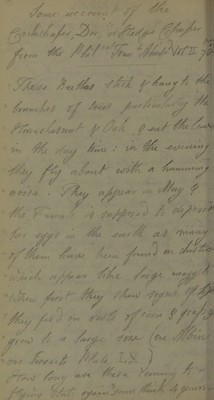 Some account of the
Cockchafer, Dor, or Hedge Chafer
from the Phil. Trans. Vol II
These Beetles stick & hang to the
branches of trees particularly the
& Oak & eat the leaves
in the day time: in the evening
they fly about with a humming
noise. They appear in May &
the Female is supposed to deposit
her eggs in the earth as many
of them have been found in
which appear like large maggots
When first they show signs of life
they feed on roots of corn & grass &
grow to a large size (see Albin
on Insects Plate LX)
How long are these coming to a
flying state some think 4 years